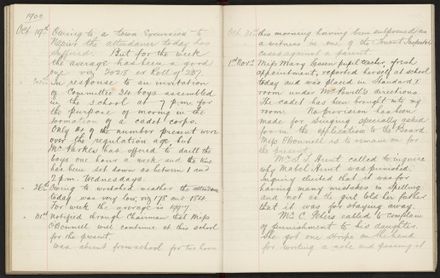 1902
Oct. 19th Owing to a Town Excursion to
Napier the attendance today has
suffered. But for the week
the average has been a good
one viz 204.8 ex Roll of 227.
In response to an invitation
of Committee 34 boys assembled
in the school at 7 p.m. for
the purpose of moving in the
formation of a cadet corps.
Only of the number present were
over the regulation age but
Mr Parkes has offered to drill the
boys one hour a week and the time
has been set down as between 1 and
2 p.m. Wednesdays.
Owing to wretched weather the attendance
today was very low, viz 178 and 184.
For week the average is
31st Notified through Chairman that Miss
O'Connell will continue at this school
for the present.
Was absent from school for two hours
Oct. 31st this morning having been subpoenaed as
a witness in one of the
cases against a parent.
1st Nov. Miss Mary pupil teacher, fresh
appointment, reported herself at school
today and was placed in Standard 1
room under directions.
The cadet has been brought into my
room. No provision has been
made for singing specially asked
for in the application to the Board
Miss O'Connell is to remain on for
the
Mr S. J. Hunt called to inquire
why Mabel Hunt was punished.
Inquiry elicited that it was for
having many mistakes in Spelling
and not as the girl told her father
that it was for staying away.
Mr C. called to complain
of punishment to his daughter.
She got one stroke on the hand
for writing a note and passing it